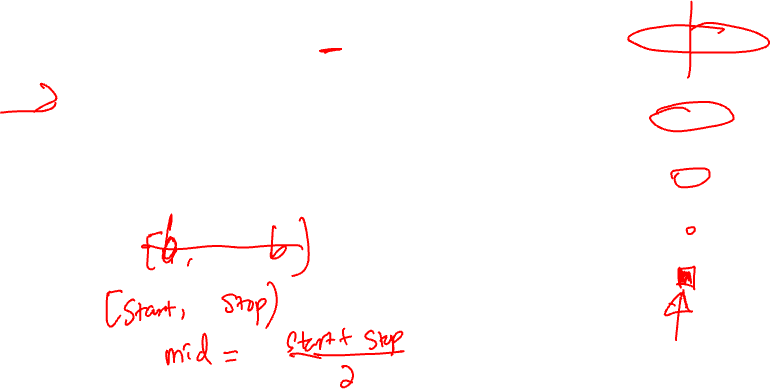 [start, stop)
mid = start + stop / 2